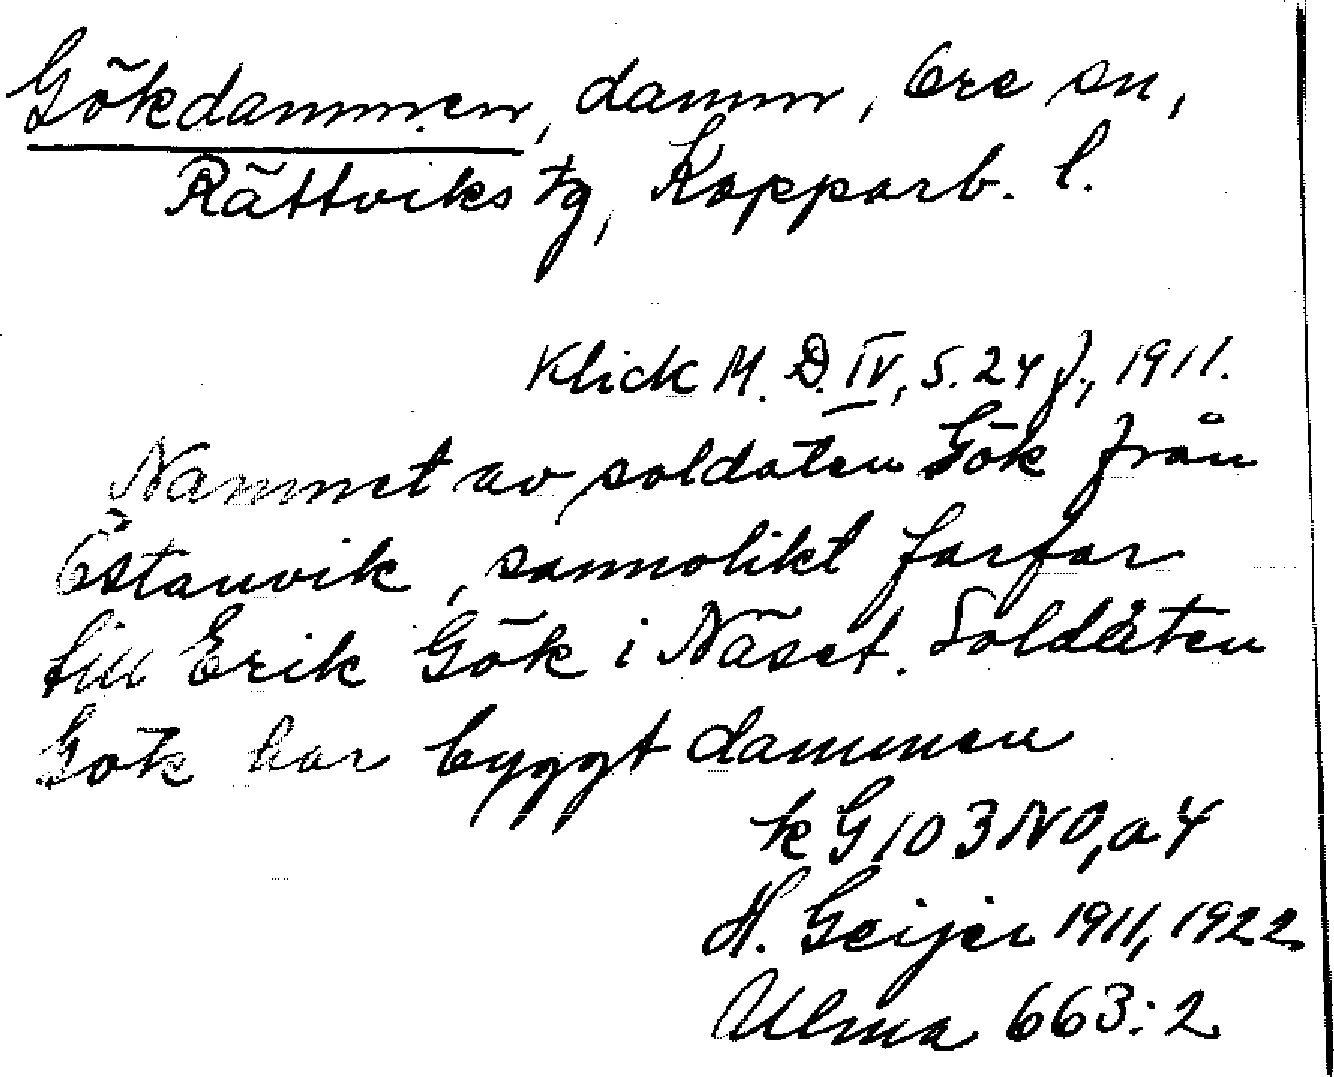 Gökdammen, damm, Ore sn,
Rättviks tg, Kopparb. l.
Klick M. D. IV, S. 24 f., 1911.
Namnet av soldaten Gök från
Östanvik, sannolikt farfar
till Erik Gök i Näset. Soldaten
Gök har byggt dammen
k G 103 NO, a 4
H. Geijer 1911, 1922
Ulma 663:2